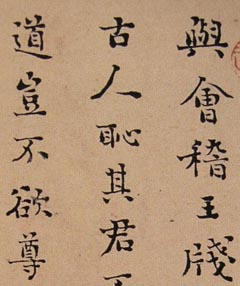 與會稽王牋
古人恥其君不
道豈不欲尊